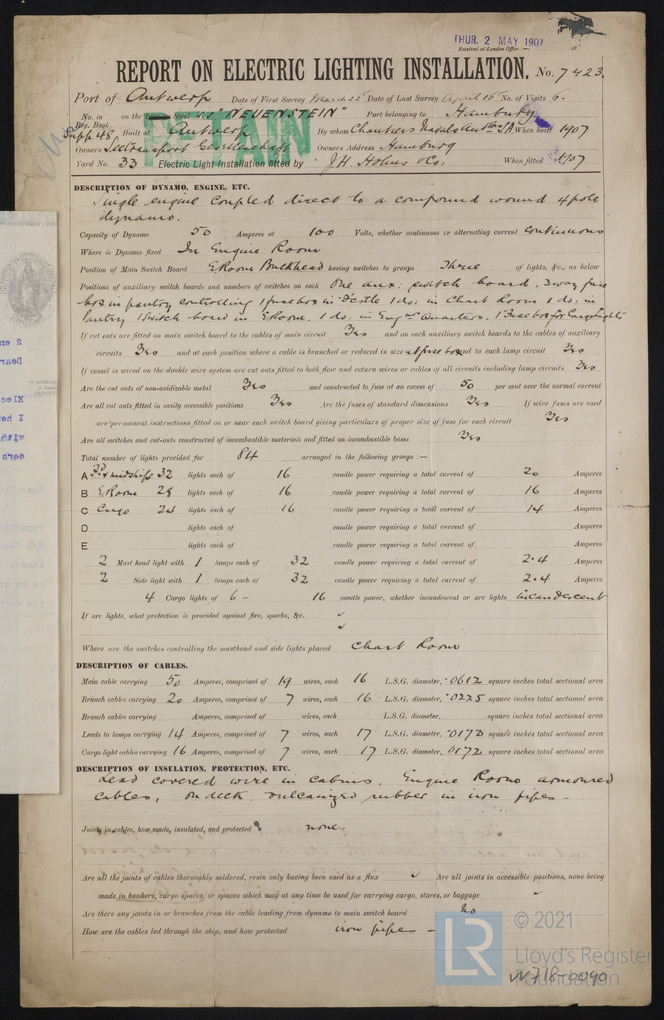 THUR. 2 MAY 1907
Received at London Office
REPORT ON ELECTRIC LIGHTING INSTALLATION. No. 7423.
Port of Antwerp Date of First Survey March 22 Date of Last Survey April 16 No. of Visits 6.
No. in on the "NEUENSTEIN" Port belonging to Hamburg
Reg. Book
Supp 48 Built at Antwerp By whom Chantiers Navals When built 1907
Owners Seetransport Gesellschaft Owners Address Hamburg
Yard No. 33 Electric Light Installation fitted by J.H. Holmes & Co. When fitted 1907
RETAIN
DESCRIPTION OF DYNAMO, ENGINE, ETC.
Single engine coupled direct to a compound wound 4 pole
dynamo.
Capacity of Dynamo 50 Amperes at 100 Volts, whether continuous or alternating current continuous
Where is Dynamo fixed In Engine Room
Position of Main Switch Board E Room Bulkhead having switches to groups Three of lights, &c., as below
Positions of auxiliary switch boards and numbers of switches on each One aux: switch board, 3 way fuse
box in pantry controlling 1 fuse box in F'castle 1 do: in Chart Room 1 do: in
Pantry 1 Switch board in E Room. 1 do: in Engrs Quarters. 1 Fuse box for Cargo Lights
If cut outs are fitted on main switch board to the cables of main circuit Yes and on each auxiliary switch boards to the cables of auxiliary
circuits Yes and at each position where a cable is branched or reduced in size at fuse box and to each lamp circuit Yes
If vessel is wired on the double wire system are cut outs fitted to both flow and return wires or cables of all circuits including lamp circuits Yes
Are the cut outs of non-oxidizable metal Yes and constructed to fuse at an excess of 50 per cent over the normal current
Are all cut outs fitted in easily accessible positions Yes Are the fuses of standard dimensions Yes If wire fuses are used
are permanent instructions fitted on or near each switch board giving particulars of proper size of fuse for each circuit Yes
Are all switches and cut-outs constructed of incombustible materials and fitted on incombustible bases Yes
Total number of lights provided for 84 arranged in the following groups :—
A Fd & midships 32 lights each of 16 candle power requiring a total current of 20 Amperes
B E Room 28 lights each of 16 candle power requiring a total current of 16 Amperes
C Cargo 24 lights each of 16 candle power requiring a total current of 14 Amperes
D lights each of candle power requiring a total current of Amperes
E lights each of candle power requiring a total current of Amperes
2 Mast head light with 1 lamps each of 32 candle power requiring a total current of 2.4 Amperes
2 Side light with 1 lamps each of 32 candle power requiring a total current of 2.4 Amperes
4 Cargo lights of 6 - 16 candle power, whether incandescent or arc lights incandescent
If arc lights, what protection is provided against fire, sparks, &c. ✓
✓
Where are the switches controlling the masthead and side lights placed Chart Room
DESCRIPTION OF CABLES.
Main cable carrying 50 Amperes, comprised of 19 wires, each 16 L.S.G. diameter, .0612 square inches total sectional area
Branch cables carrying 20 Amperes, comprised of 7 wires, each 16 L.S.G. diameter, .0225 square inches total sectional area
Branch cables carrying Amperes, comprised of wires, each L.S.G. diameter, square inches total sectional area
Leads to lamps carrying 14 Amperes, comprised of 7 wires, each 17 L.S.G. diameter, .0172 square inches total sectional area
Cargo light cables carrying 16 Amperes, comprised of 7 wires, each 17 L.S.G. diameter, .0172 square inches total sectional area
DESCRIPTION OF INSULATION, PROTECTION, ETC.
Lead covered wire in cabins. Engine Room armoured
cables, on deck vulcanized rubber in iron pipes -
Joints in cables, how made, insulated, and protected none
Are all the joints of cables thoroughly soldered, resin only having been used as a flux ✓ Are all joints in accessible positions, none being
made in bunkers, cargo spaces, or spaces which may at any time be used for carrying cargo, stores, or baggage
Are there any joints in or branches from the cable leading from dynamo to main switch board no
How are the cables led through the ship, and how protected iron pipes -
LR
© 2021
Lloyd's Register
Foundation
W718-0090